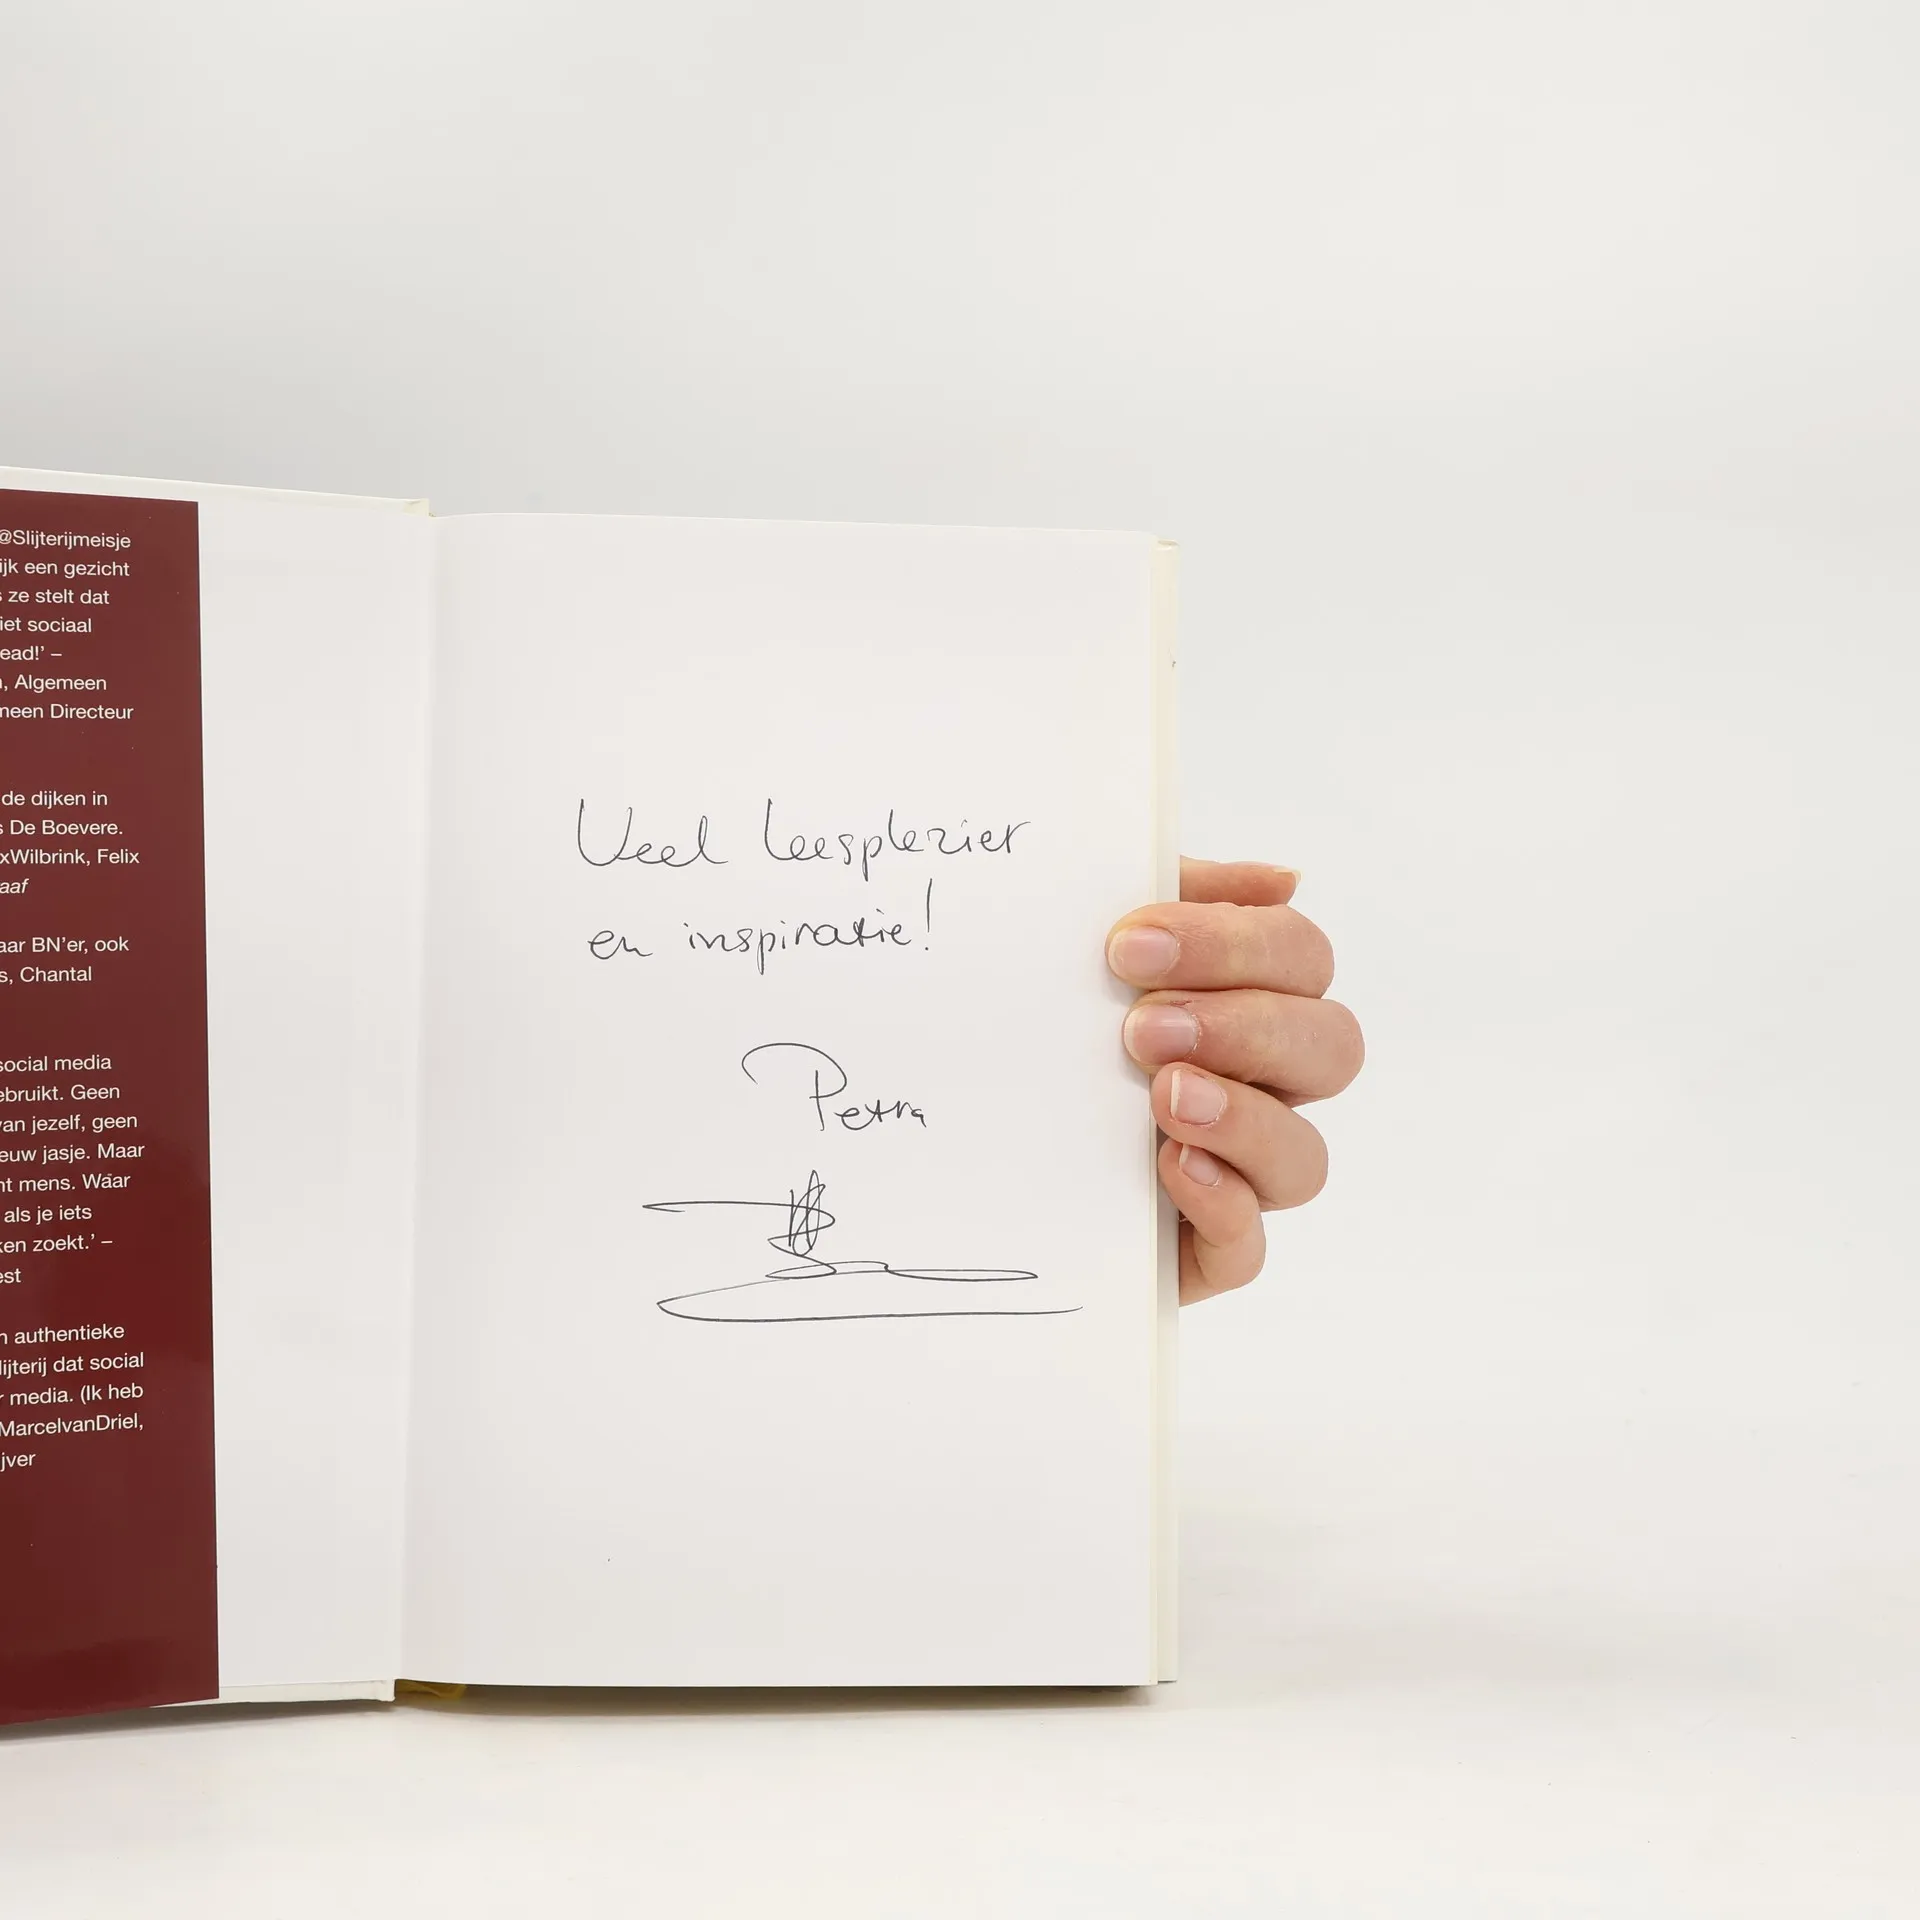 @Slijterijmeisje
ijk een gezicht
s ze stelt dat
iet sociaal
ead!’ –
n, Algemeen
meen Directeur
de dijken in
s De Boevere.
xWilbrink, Felix
aaf
aar BN’er, ook
s, Chantal
social media
ebruikt. Geen
van jezelf, geen
euw jasje. Maar
ht mens. Waar
als je iets
ken zoekt.’ –
est
n authentieke
lijterij dat social
r media. (Ik heb
MarcelvanDriel,
ijver
Veel leesplezier
en inspiratie!
Petra